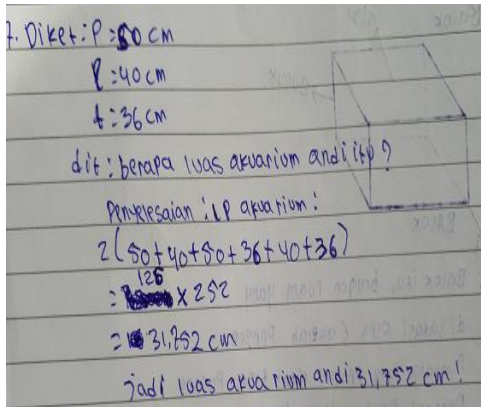 7. Diket : P = 50 cm
l = 40 cm
t = 36 cm
dit : berapa luas akuarium andi itu ?
Penyelesaian : LP akuarium :
2 (50+40+50+36+40+36)
= 126 x 252
= 31,752 cm
jadi luas akuarium andi 31,752 cm !